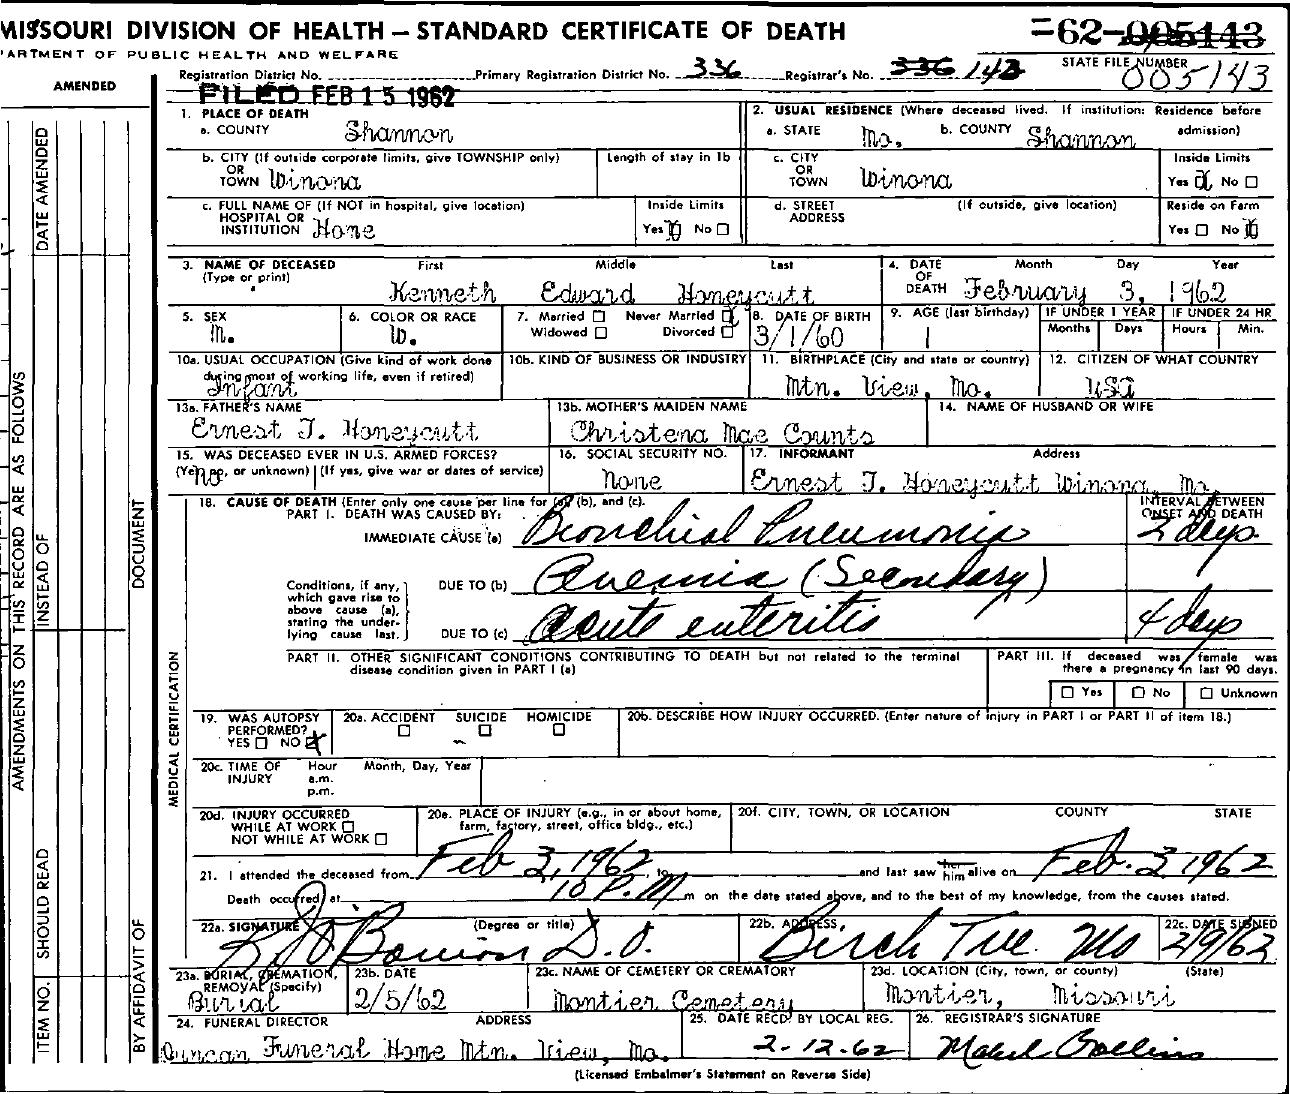 MISSOURI DIVISION OF HEALTH — STANDARD CERTIFICATE OF DEATH
=62-005143
PARTMENT OF PUBLIC HEALTH AND WELFARE
STATE FILE NUMBER
005143
AMENDED
Registration District No. Primary Registration District No. 336 Registrar's No. 336 143
FILED FEB 15 1962
1. PLACE OF DEATH
a. COUNTY Shannon
2. USUAL RESIDENCE (Where deceased lived. If institution: Residence before admission)
a. STATE Mo. b. COUNTY Shannon
b. CITY (If outside corporate limits, give TOWNSHIP only) OR TOWN Winona
Length of stay in 1b
c. CITY OR TOWN Winona
Inside Limits
Yes X No
c. FULL NAME OF (If NOT in hospital, give location) HOSPITAL OR INSTITUTION Home
Inside Limits
Yes X No
d. STREET ADDRESS (If outside, give location)
Reside on Farm
Yes No X
3. NAME OF DECEASED (Type or print)
First Middle Last
Kenneth Edward Honeycutt
4. DATE OF DEATH Month Day Year
February 3, 1962
5. SEX
M.
6. COLOR OR RACE
W.
7. Married Never Married X
Widowed Divorced
8. DATE OF BIRTH
3/1/60
9. AGE (last birthday)
1
IF UNDER 1 YEAR
Months Days
IF UNDER 24 HR
Hours Min.
10a. USUAL OCCUPATION (Give kind of work done during most of working life, even if retired)
Infant
10b. KIND OF BUSINESS OR INDUSTRY
11. BIRTHPLACE (City and state or country)
Mtn. View, Mo.
12. CITIZEN OF WHAT COUNTRY
USA
13a. FATHER'S NAME
Ernest J. Honeycutt
13b. MOTHER'S MAIDEN NAME
Christena Mae Counts
14. NAME OF HUSBAND OR WIFE
15. WAS DECEASED EVER IN U.S. ARMED FORCES?
(Yes, no, or unknown) (If yes, give war or dates of service)
no
16. SOCIAL SECURITY NO.
None
17. INFORMANT Address
Ernest J. Honeycutt Winona, Mo.
18. CAUSE OF DEATH (Enter only one cause per line for (a), (b), and (c).
PART I. DEATH WAS CAUSED BY:
INTERVAL BETWEEN ONSET AND DEATH
IMMEDIATE CAUSE (a) Bronchial Pneumonia 2 days.
Conditions, if any, which gave rise to above cause (a), stating the underlying cause last.
DUE TO (b) Anemia (Secondary)
DUE TO (c) Acute enteritis 4 days
PART II. OTHER SIGNIFICANT CONDITIONS CONTRIBUTING TO DEATH but not related to the terminal disease condition given in PART I (a)
PART III. If deceased was female was there a pregnancy in last 90 days.
Yes No Unknown
19. WAS AUTOPSY PERFORMED?
YES NO X
20a. ACCIDENT SUICIDE HOMICIDE
20b. DESCRIBE HOW INJURY OCCURRED. (Enter nature of injury in PART I or PART II of item 18.)
20c. TIME OF INJURY Hour a.m. p.m. Month, Day, Year
20d. INJURY OCCURRED
WHILE AT WORK
NOT WHILE AT WORK
20e. PLACE OF INJURY (e.g., in or about home, farm, factory, street, office bldg., etc.)
20f. CITY, TOWN, OR LOCATION COUNTY STATE
21. I attended the deceased from Feb 3, 1962, to and last saw her him alive on Feb. 3, 1962
Death occurred at 10 P.M m on the date stated above, and to the best of my knowledge, from the causes stated.
22a. SIGNATURE (Degree or title)
D.O.
22b. ADDRESS
Birch Tree Mo
22c. DATE SIGNED
2/9/62
23a. BURIAL, CREMATION, REMOVAL (Specify)
Burial
23b. DATE
2/5/62
23c. NAME OF CEMETERY OR CREMATORY
Montier Cemetery
23d. LOCATION (City, town, or county) (State)
Montier, Missouri
24. FUNERAL DIRECTOR ADDRESS
Duncan Funeral Home Mtn. View, Mo.
25. DATE RECD. BY LOCAL REG.
2-12-62
26. REGISTRAR'S SIGNATURE
Mabel Collins
(Licensed Embalmer's Statement on Reverse Side)
MEDICAL CERTIFICATION
AMENDMENTS ON THIS RECORD ARE AS FOLLOWS
DATE AMENDED
INSTEAD OF
DOCUMENT
SHOULD READ
ITEM NO.
BY AFFIDAVIT OF